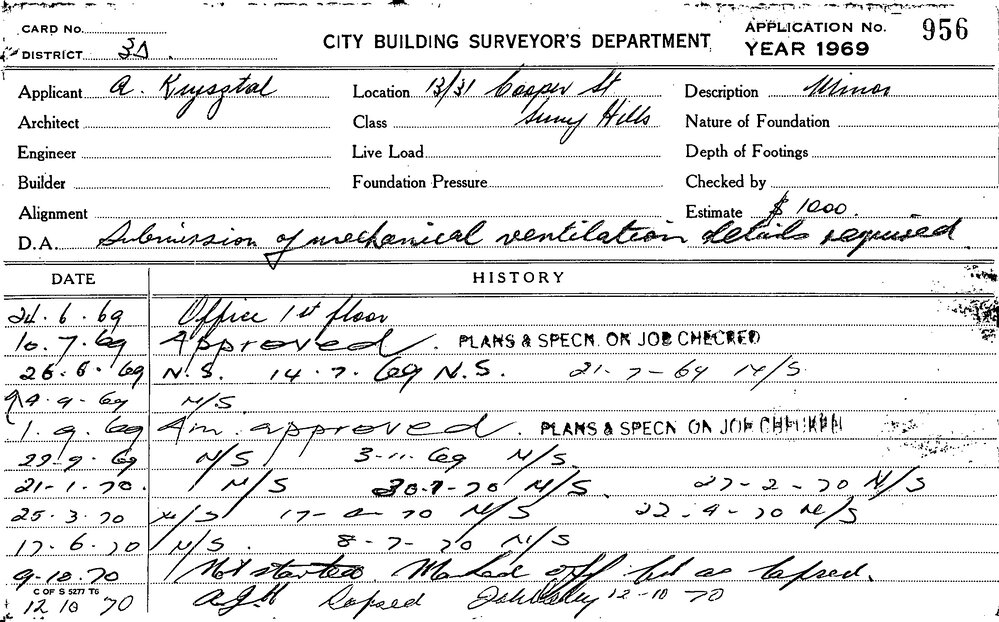 CARD No.
DISTRICT 3D.
CITY BUILDING SURVEYOR'S DEPARTMENT
APPLICATION No. 956
YEAR 1969
Applicant A. Krysztal Location 13/31 Cooper St Description Minor
Architect Class Surry Hills Nature of Foundation
Engineer Live Load Depth of Footings
Builder Foundation Pressure Checked by
Alignment Estimate $ 1000.
D.A. Submission of mechanical ventilation details required.
DATE HISTORY
24.6.69 Office 1st floor
10.7.69 Approved. PLANS & SPECN. ON JOB CHECKED
26.6.69 N.S. 14.7.69 N.S. 21-7-69 N/S
9.69 N/S.
1.9.69 Am. approved. PLANS & SPECN ON JOB CHECKED
29.9.69 N/S 3-11.69 N/S.
21-1.70. N/S 70 N/S. 27-2-70 N/S
25.3.70 N/S 17- 70 N/S 22-4-70 N/S
17.6.70 N/S. 8-7-70 N/S
9-10.70 Not started. Marked off as lapsed.
C OF S 5277 T6
12 10 70 Lapsed 12-10 70